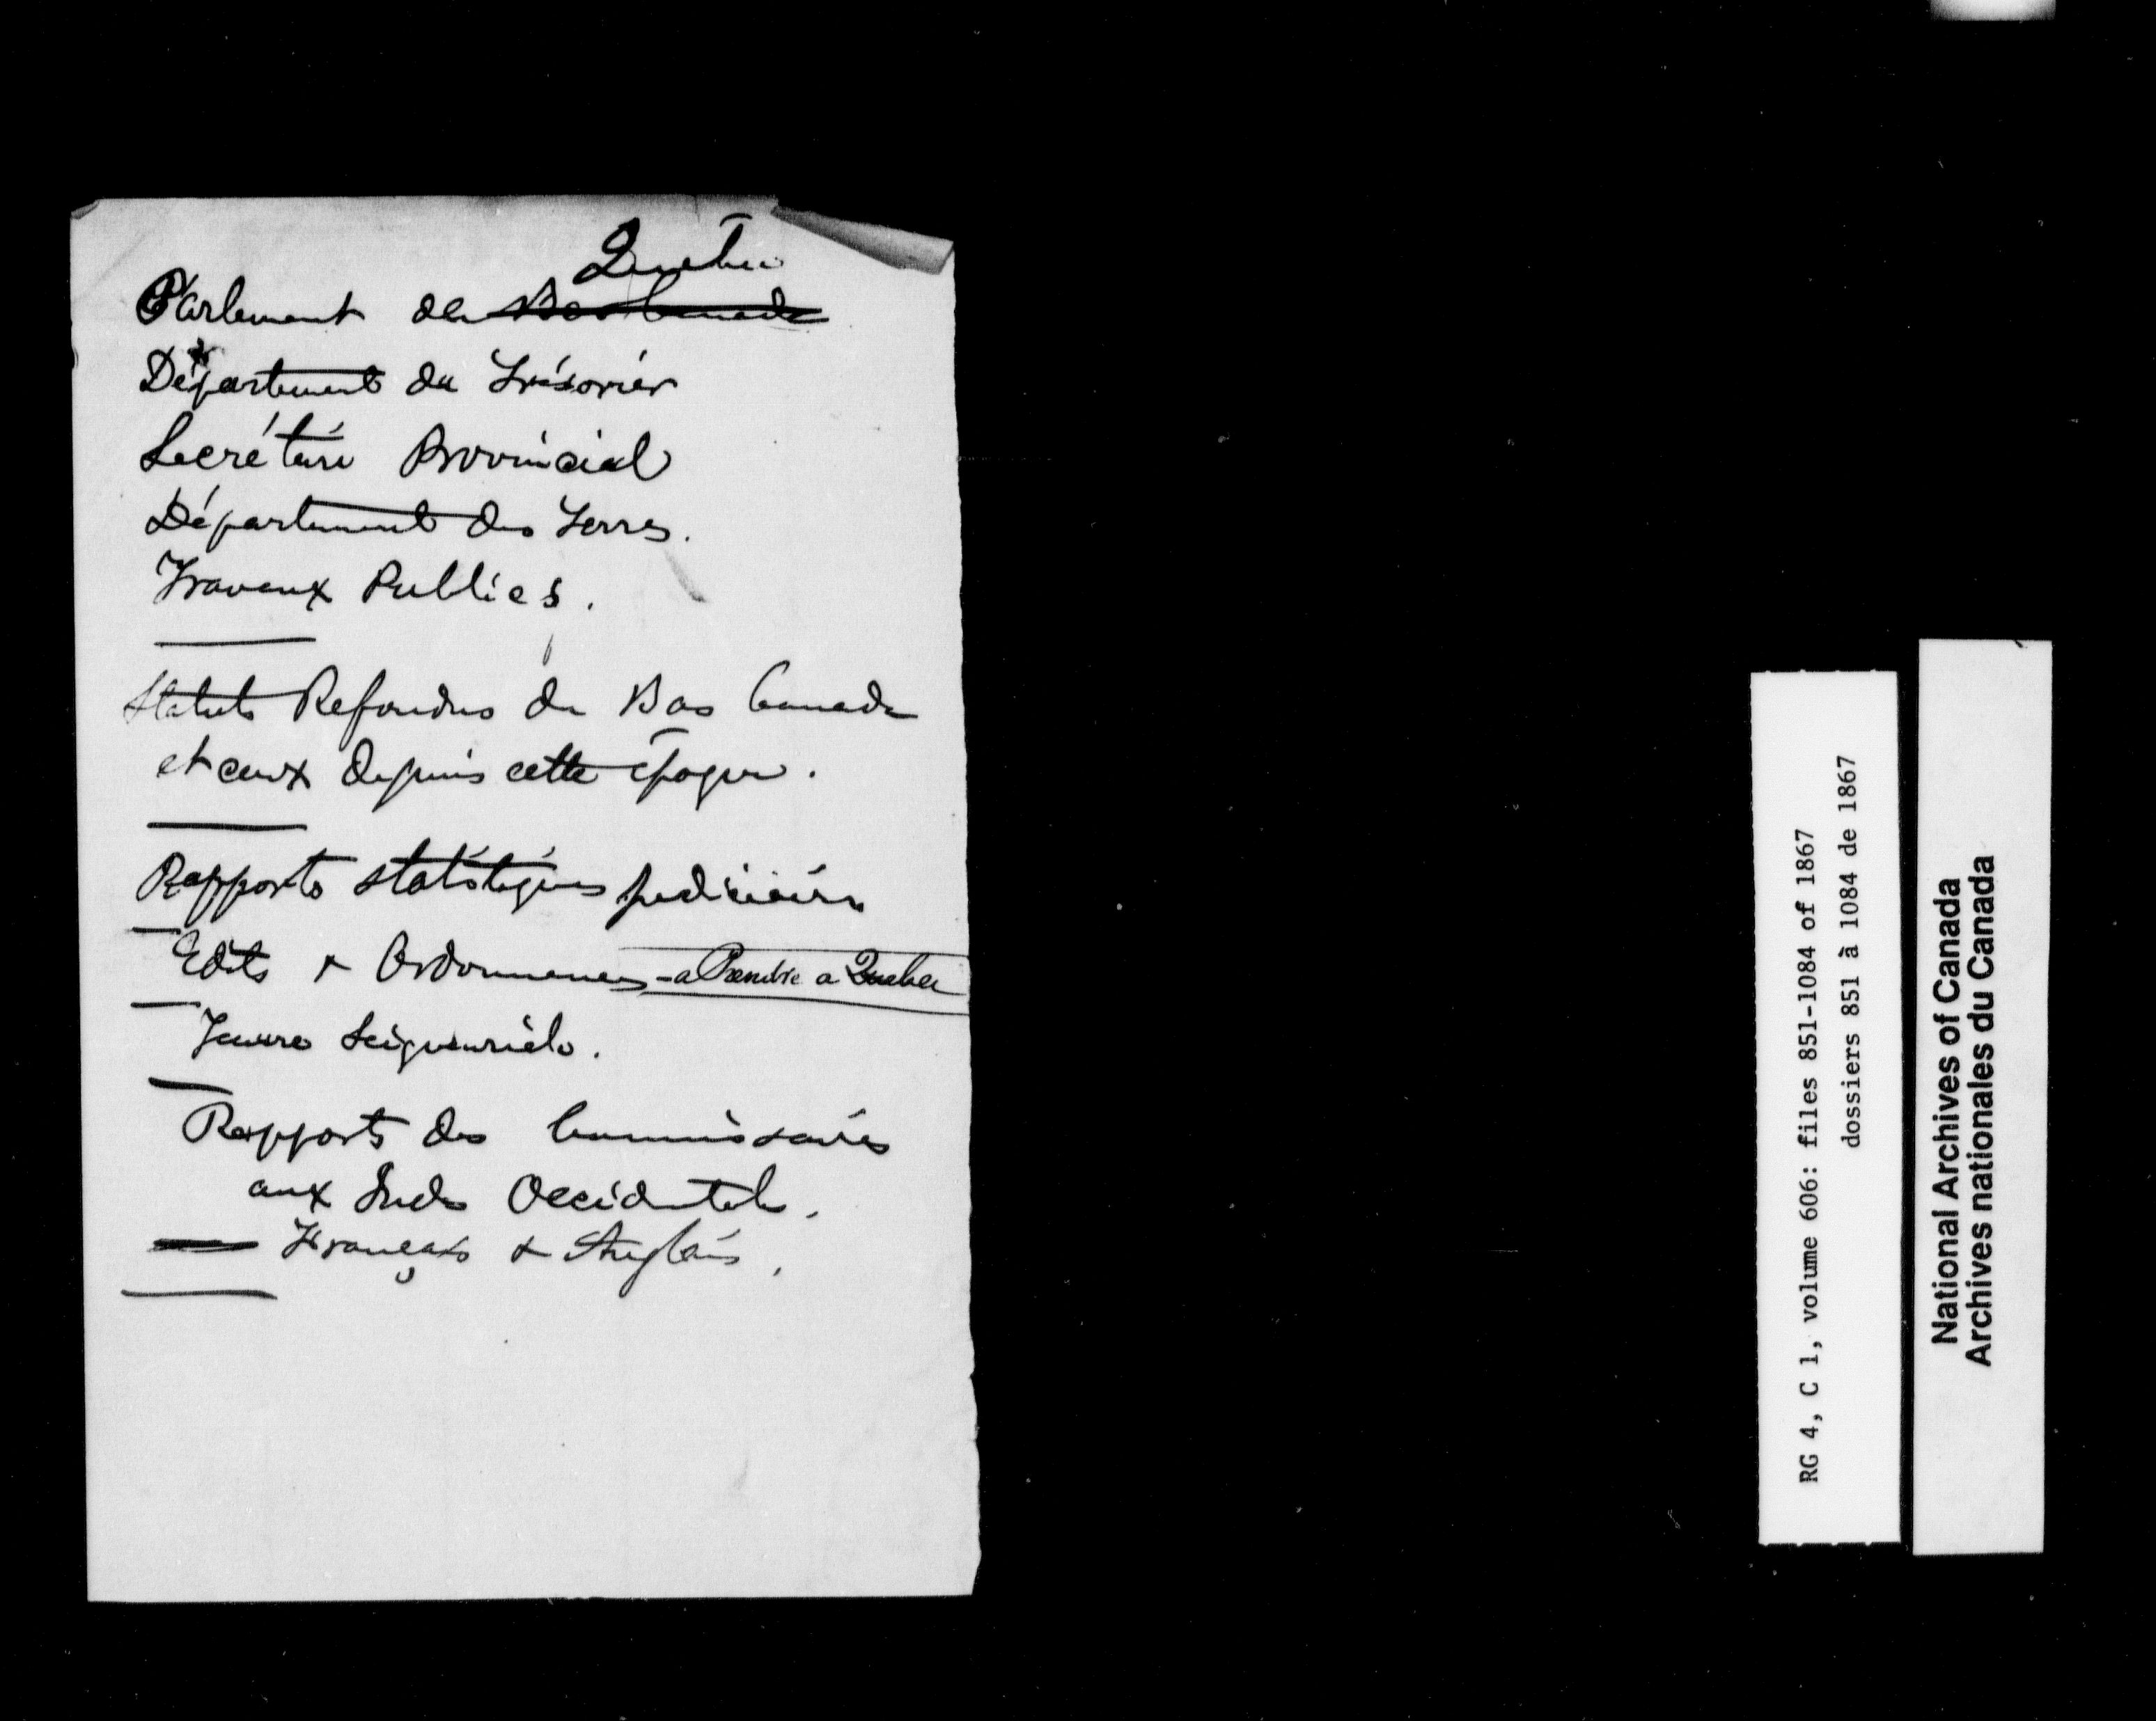 Québec
Parlement de Bas Canada
Département du Trésorier
Secrétaire Provincial
Département des Terres.
Travaux Publics.
Statuts Refondus du Bas Canada
et ceux depuis cette époque.
Rapports statistiques judiciaires
Edits & Ordonnances - a Prendre a Quebec
Tenure Seigneuriale.
Rapports des Commissaires
aux Indes Occidentales.
Français & Anglais.
RG 4, C 1, volume 606: files 851-1084 of 1867
dossiers 851 à 1084 de 1867
National Archives of Canada
Archives nationales du Canada